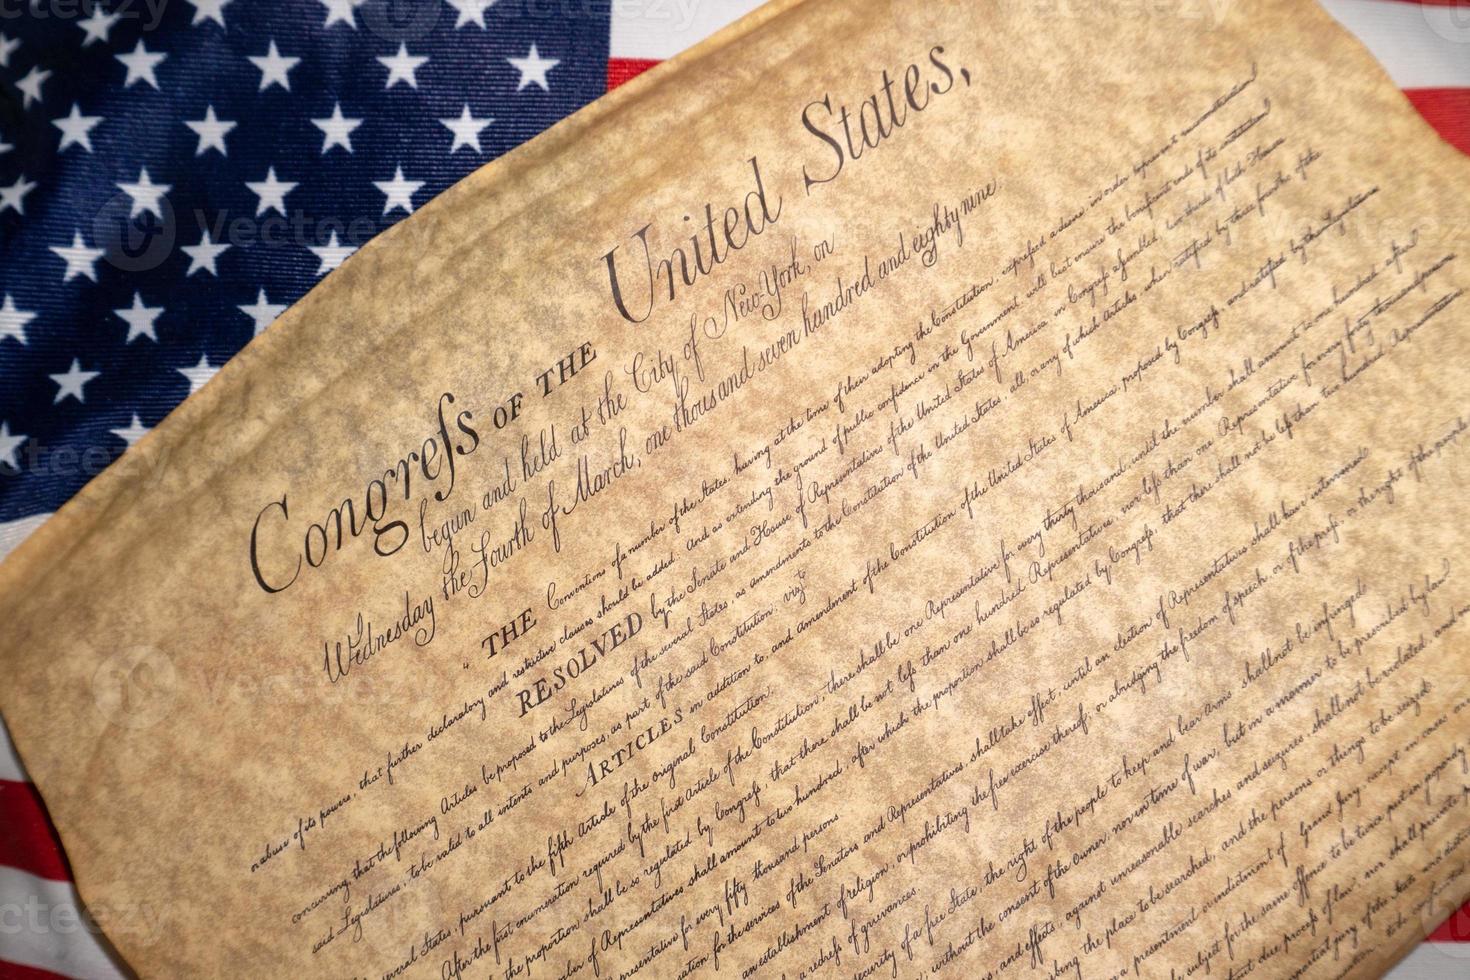 Congreſs OF THE United States,
begun and held at the City of New-York, on
Wednesday the Fourth of March, one thousand seven hundred and eighty nine.
THE Conventions of a number of the States, having at the time of their adopting the Constitution, expreſsed a desire, in order to prevent
or abuse of its powers, that further declaratory and restrictive clauses should be added: And as extending the ground of public confidence in the Government, will best ensure the
RESOLVED by the Senate and House of Representatives of the United States of America, in Congreſs aſsembled, two thirds of both Houses
concurring, that the following Articles be proposed to the Legislatures of the several States, as amendments to the Constitution of the United States, all, or any of which Articles, when ratified by three fourths of the
said Legislatures, to be valid to all intents and purposes, as part of the said Constitution; vizt
ARTICLES in addition to, and amendment of the Constitution of the United States of America, proposed by Congreſs, and ratified by the Legislatures
several States, pursuant to the fifth Article of the original Constitution.
After the first enumeration required by the first Article of the Constitution, there shall be one Representative for every thirty thousand, until the number shall amount to one hundred, after
the proportion shall be so regulated by Congreſs, that there shall be not leſs than one hundred Representatives, nor leſs than one Representative for every forty thousand persons
of Representatives shall amount to two hundred, after which the proportion shall be so regulated by Congreſs, that there shall not be leſs than two hundred Representatives
for every fifty thousand persons.
for the services of the Senators and Representatives, shall take effect, until an election of Representatives shall have intervened.
an establishment of religion, or prohibiting the free exercise thereof; or abridging the freedom of speech, or of the preſs; or the right of the people
a redreſs of grievances.
security of a free State, the right of the people to keep and bear Arms, shall not be infringed.
without the consent of the Owner, nor in time of war, but in a manner to be prescribed by law.
and effects, against unreasonable searches and seizures, shall not be violated, and
the place to be searched, and the persons or things to be seized.
a presentment or indictment of a Grand Jury, except in cases
subject for the same offence to be twice put in jeopardy
without due process of law; nor shall private
Vecteezy
Vecteezy
Vecteezy